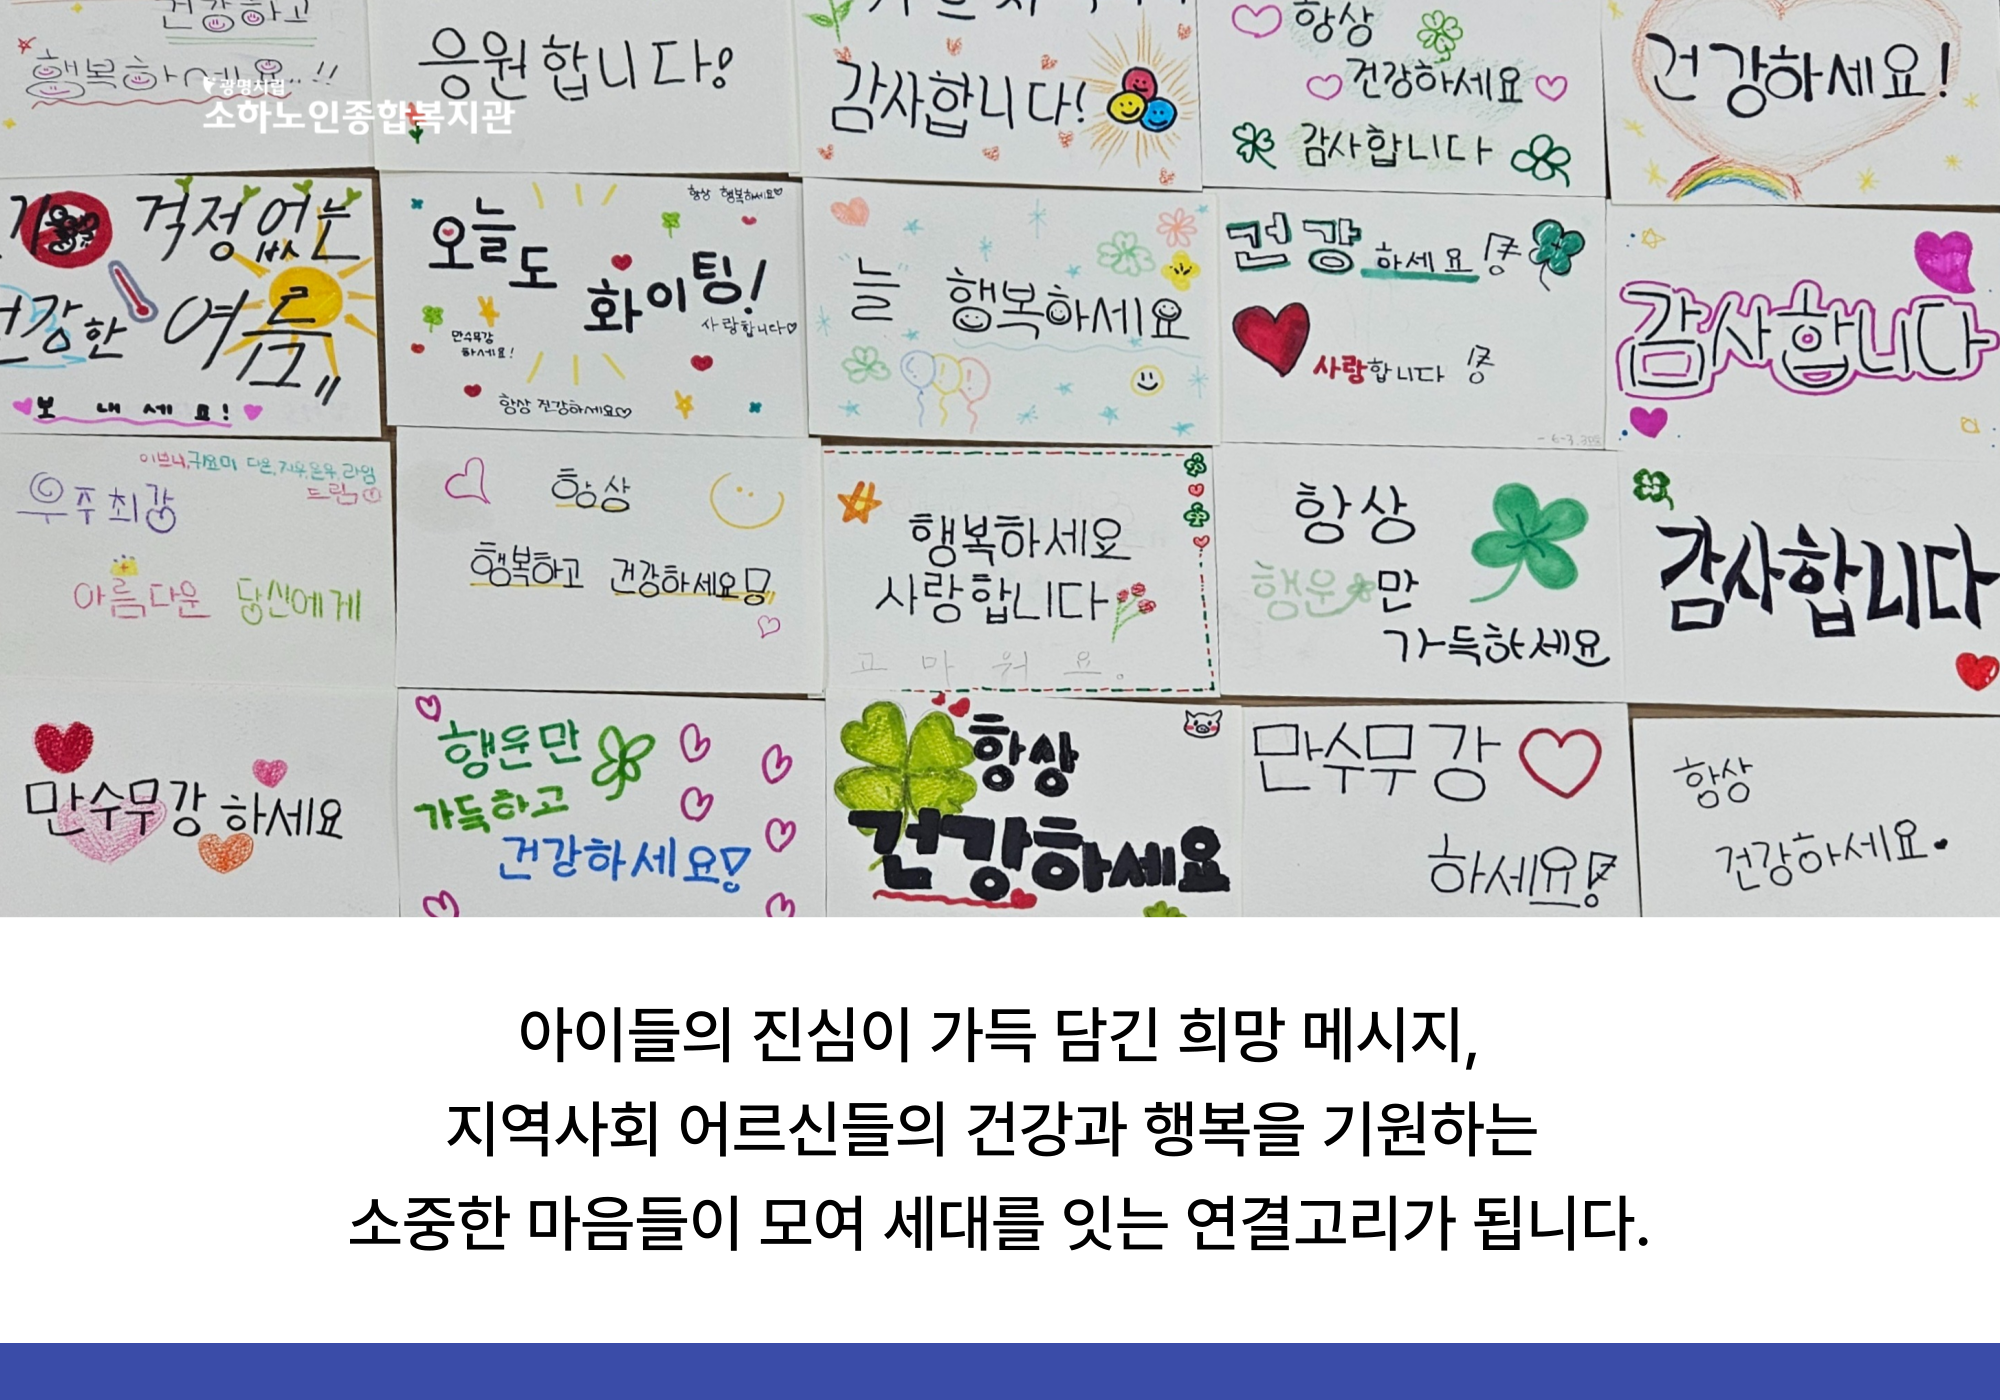 건강하고
행복하세요..!!
광명시립
소하노인종합복지관
응원합니다!
감사합니다!
항상
건강하세요
감사합니다
건강하세요!
걱정 없는
건강한 여름
보내세요!
항상 행복하세요
오늘도
화이팅!
사랑합니다
만수무강
하세요!
항상 건강하세요
늘 행복하세요
건강하세요!
사랑합니다!
감사합니다
이쁘니,귀요미 다온,지우,은우,라임
드림
우주최강
아름다운 당신에게
항상
행복하고 건강하세요!
행복하세요
사랑합니다
고마워요.
항상
행운만
가득하세요
감사합니다
만수무강 하세요
행운만
가득하고
건강하세요!
항상
건강하세요
만수무강
하세요!
항상
건강하세요.
아이들의 진심이 가득 담긴 희망 메시지,
지역사회 어르신들의 건강과 행복을 기원하는
소중한 마음들이 모여 세대를 잇는 연결고리가 됩니다.